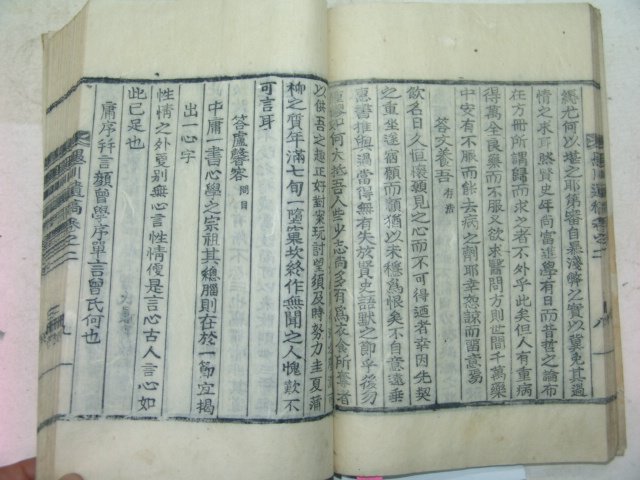 縟光何以堪之耶第審自皐淺弊之實以蔓克其過
情之求耳然賢史年尚富進學有日而昔哲之論布
在方冊所謂歸而求之者不外乎此矣但人有重病
得萬金良藥而不服又欲求醫問方則世間千萬藥
中安有不服而能去病之劑耶幸恕諒而留意焉
答文養吾
飲名日久恒懷願見之心而不可得適者幸因先契
之重坐遂宿願而顧猶以未穩爲恨矣不自意遠垂
惠書推與過當得無有失於賢史語默之節乎後勿
如何大抵吾人些少志尚多有爲衣食所奪者
以供吾之趣正好對案玩討望須及時努力圭夏蒲
柳之質年滿七旬一墮窠坎終作無聞之人愧歎不
可言耳
答盧馨容 問目
中庸一書心學之宗祖其總腦則在於一節宜揭
出一心字
性情之外更別無心言性情便是言心古人言心如
此已足也
庸序幷言顏曾學序單言曾氏何也
遺稿卷之二